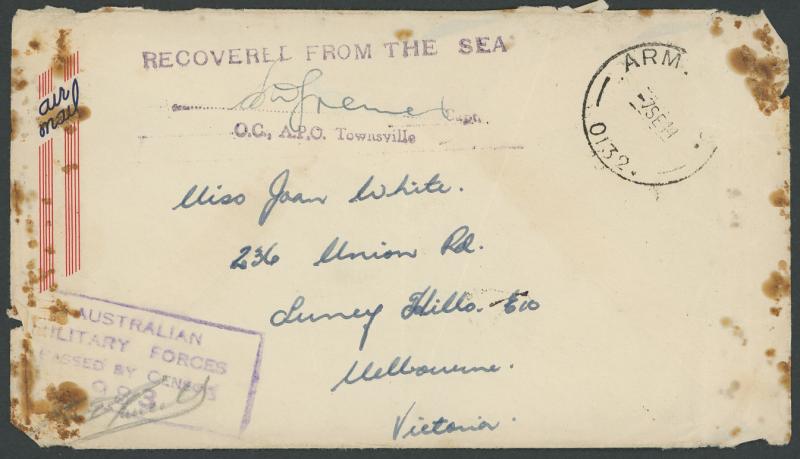 RECOVERED FROM THE SEA
Capt.
O.C., A.P.O. Townsville
air
mail
ARM.
7SE44
0132.
Miss Joan White.
236 Union Rd.
Surrey Hills. E10
Melbourne.
Victoria.
AUSTRALIAN
MILITARY FORCES
PASSED BY CENSOR
983